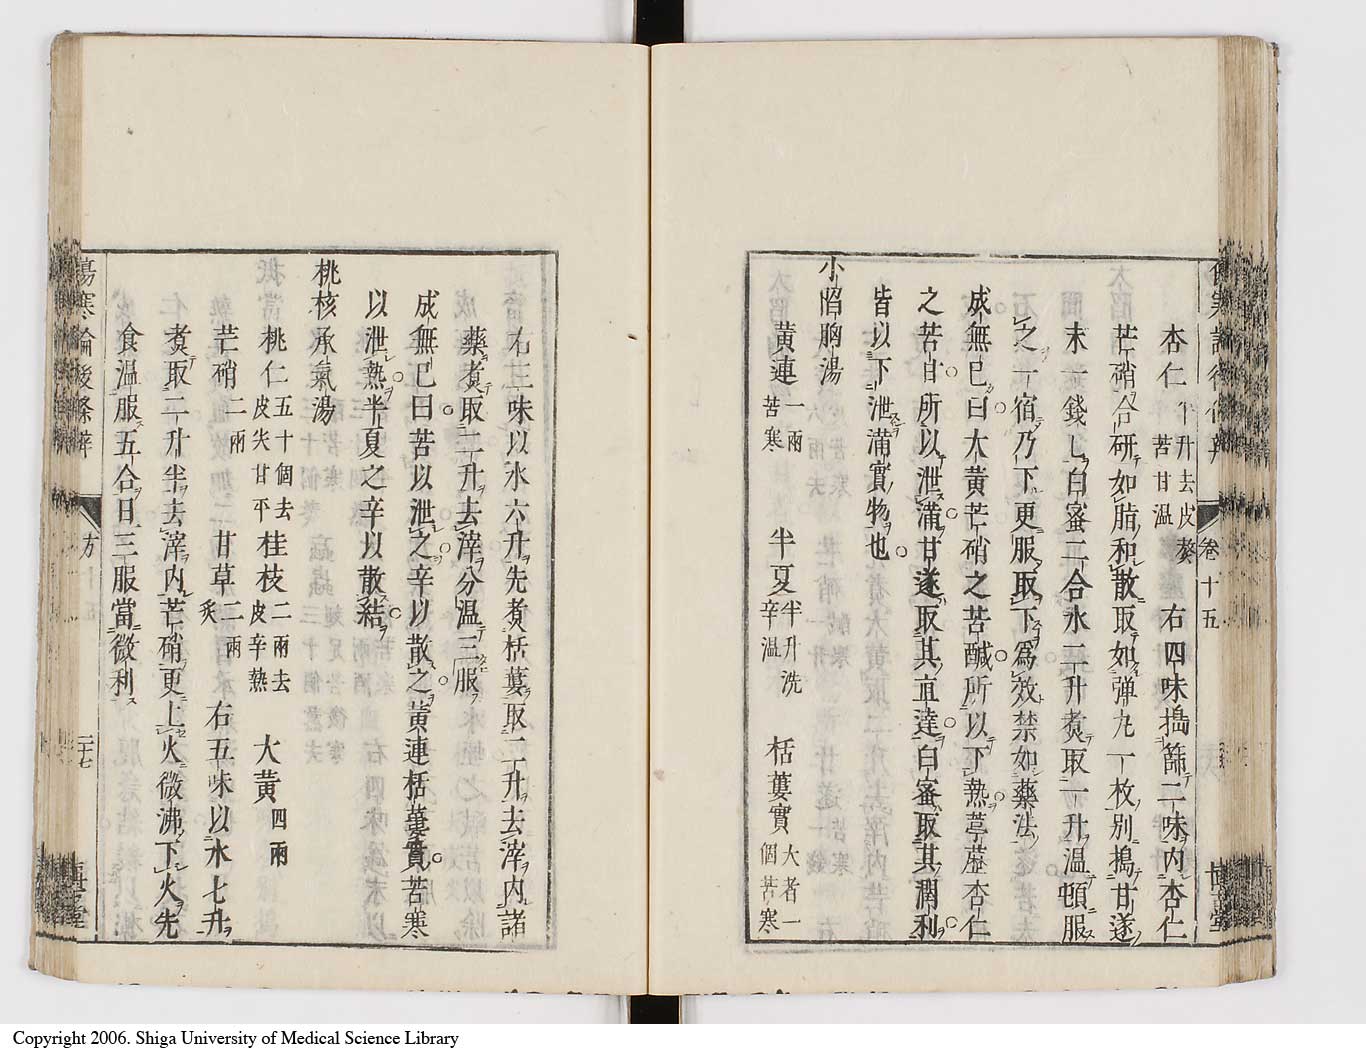 杏仁半升去皮苦甘温熬 右四味搗篩二味内杏仁
芒硝合研如脂和散取如弾丸一枚別搗甘遂
末一錢匕白蜜二合水二升煮取一升温頓服
之一宿乃下更服取下爲效禁如藥法
成無已曰大黄芒硝之苦鹹所以下熱葶藶杏仁
之苦甘所以泄滿甘遂取其直達白蜜取其潤利
皆以下泄滿實物也
小陷胸湯
黄連一兩苦寒 半夏半升洗辛温 栝蔞實大者一個苦寒
卷十五
右三味以水六升先煮栝蔞取三升去滓内諸
藥煮取二升去滓分温三服
成無已曰苦以泄之辛以散之黄連栝蔞實苦寒
以泄熱半夏之辛以散結
桃核承氣湯
桃仁五十個去皮尖甘平 桂枝二兩去皮辛熱 大黄四兩
芒硝二兩 甘草二兩炙 右五味以水七升
煮取二升半去滓内芒硝更上火微沸下火先
食温服五合日三服當微利
傷寒論後條辨
方十五
二十七
博古堂
Copyright 2006. Shiga University of Medical Science Library